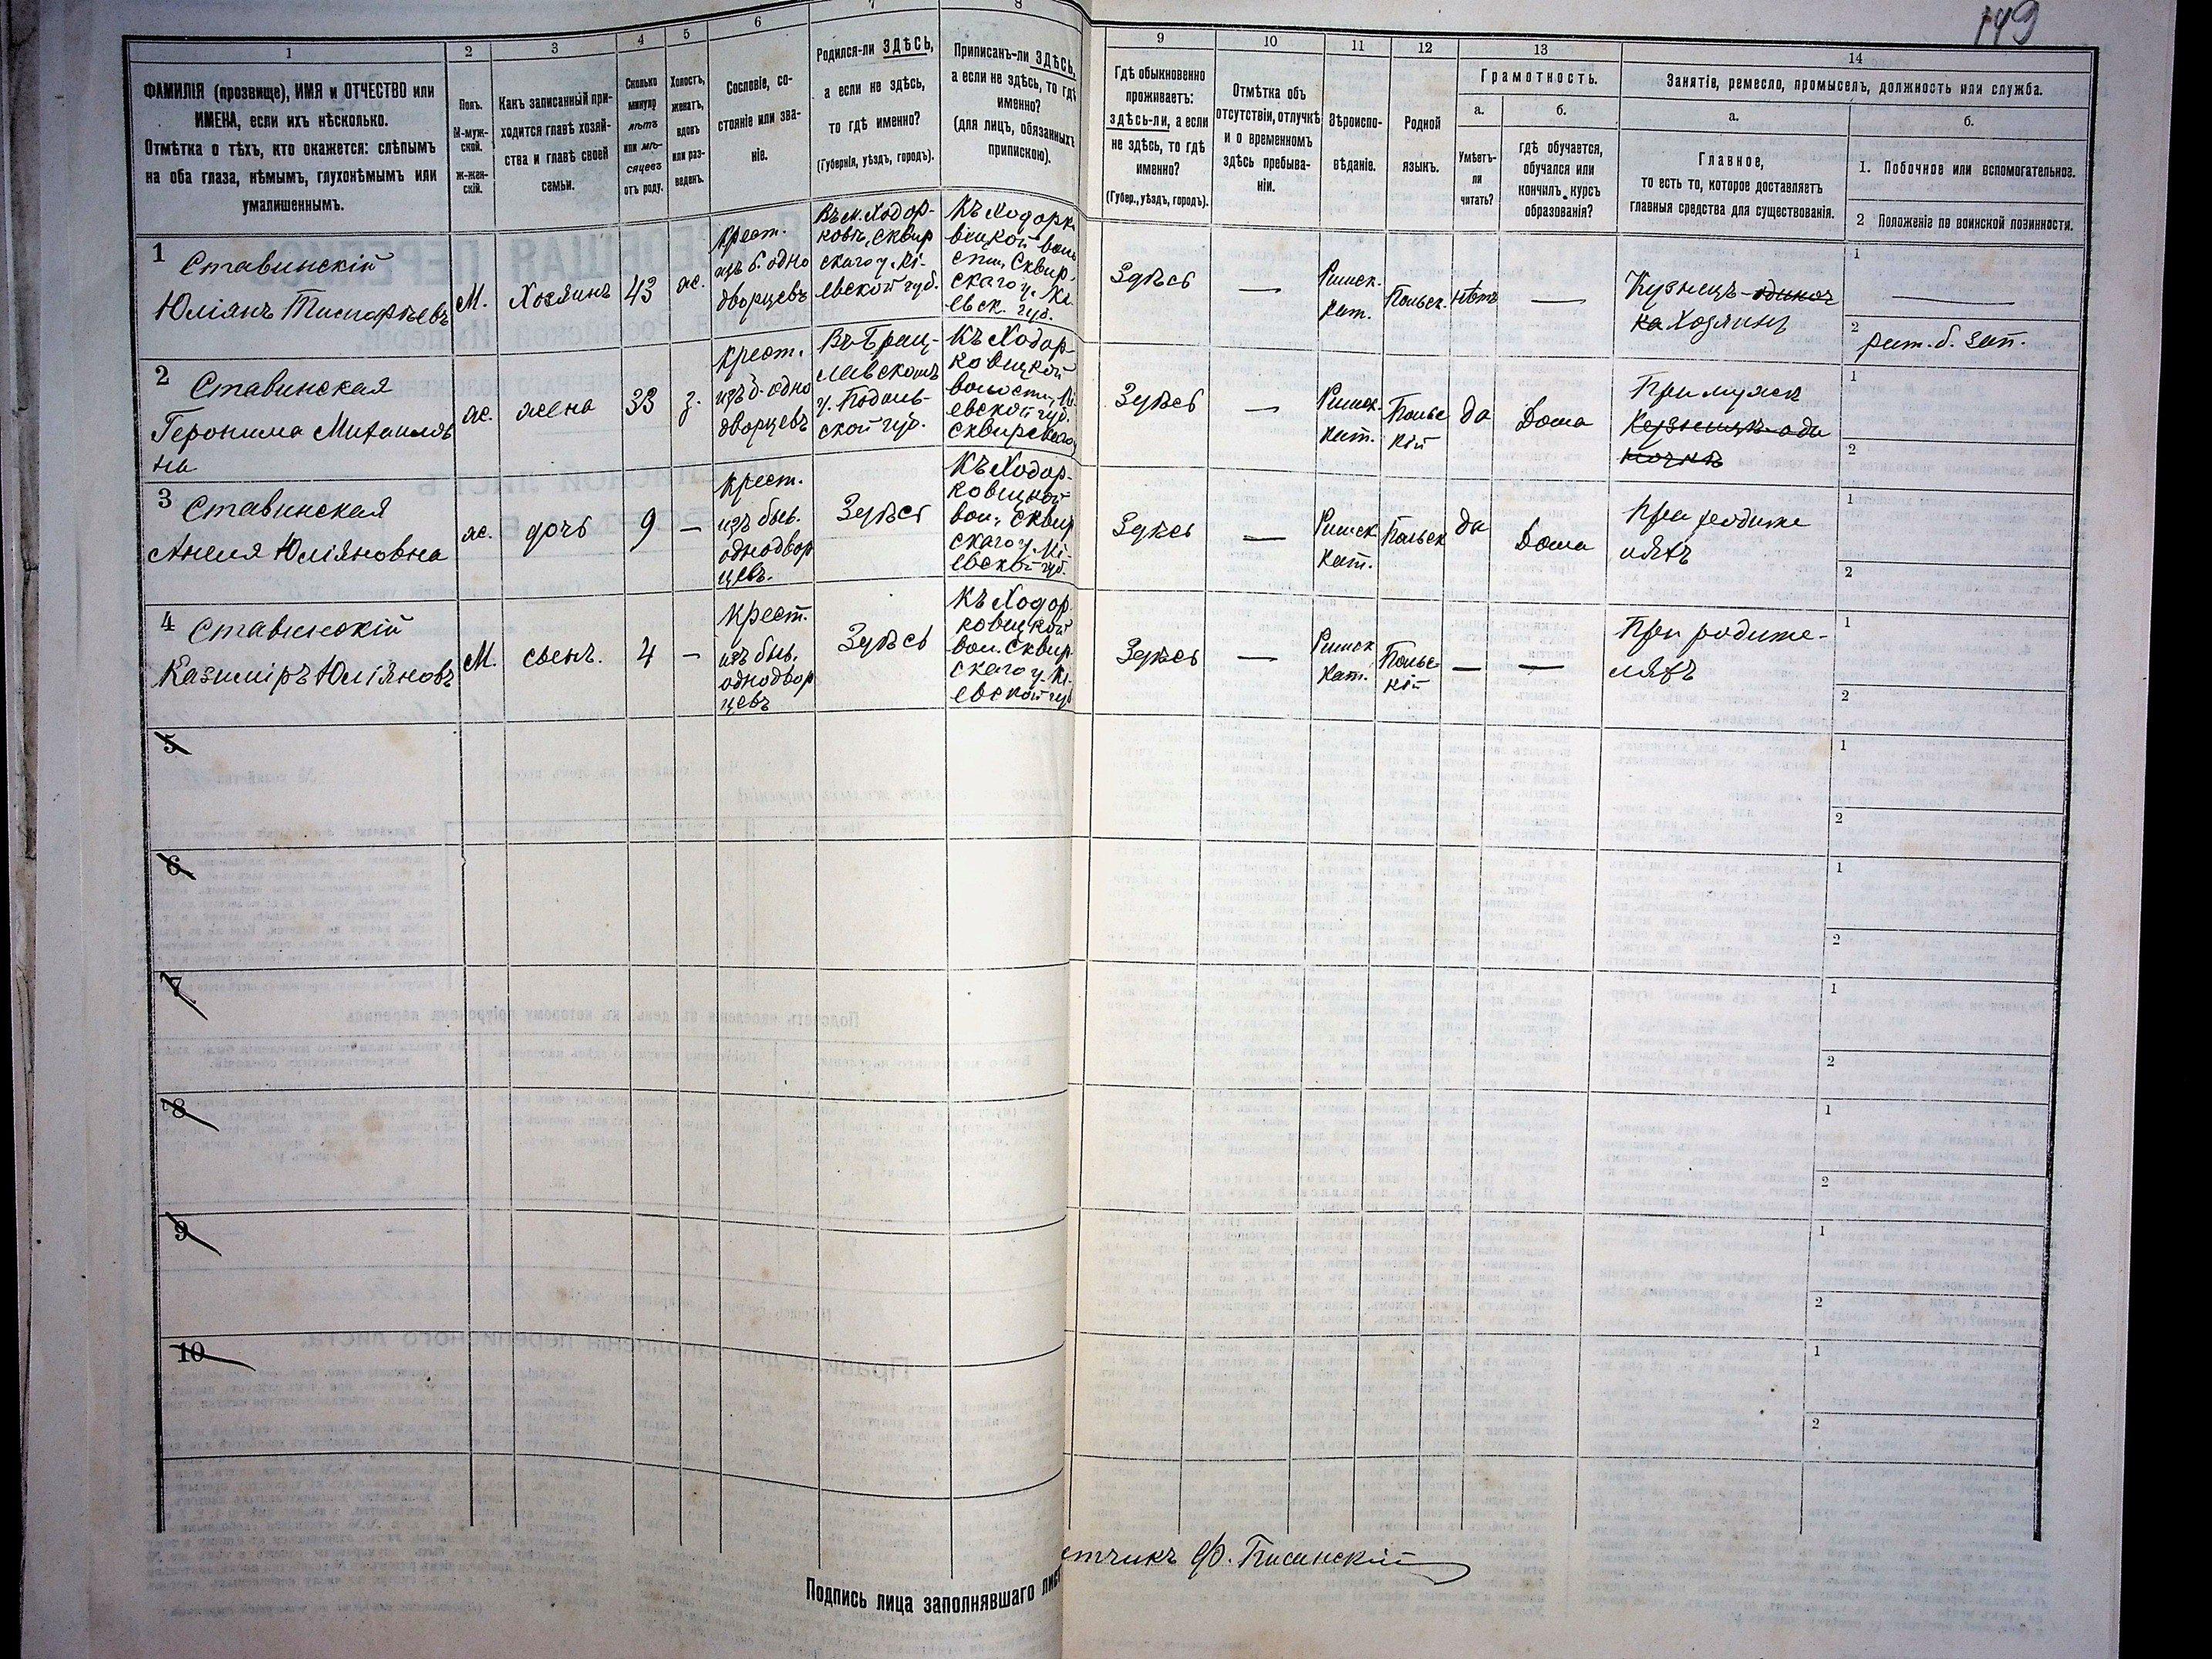 149
1
2
3
4
5
6
7
8
9
10
11
12
13
14
ФАМИЛІЯ (прозвище), ИМЯ и ОТЧЕСТВО или
ИМЕНА, если ихъ нѣсколько.
Отмѣтка о тѣхъ, кто окажется: слѣпымъ
на оба глаза, нѣмымъ, глухонѣмымъ или
умалишеннымъ.
Полъ.
М-муж-
ской.
Ж-жен-
скій.
Какъ записанный при-
ходится главѣ хозяй-
ства и главѣ своей
семьи.
Сколько
минуло
лѣтъ
или мѣ-
сяцевъ
отъ роду.
Холостъ,
женатъ,
вдовъ
или раз-
веденъ.
Сословіе, со-
стояніе или зва-
ніе.
Родился-ли ЗДѢСЬ,
а если не здѣсь,
то гдѣ именно?
(Губернія, уѣздъ, городъ).
Приписанъ-ли ЗДѢСЬ,
а если не здѣсь, то гдѣ
именно?
(для лицъ, обязанныхъ
припискою).
Гдѣ обыкновенно
проживаетъ:
здѣсь-ли, а если
не здѣсь, то гдѣ
именно?
(Губер., уѣздъ, городъ).
Отмѣтка объ
отсутствіи, отлучкѣ
и о временномъ
здѣсь пребыва-
ніи.
Вѣроиспо-
вѣданіе.
Родной
языкъ.
Грамотность.
а.
Умѣетъ-
ли
читать?
б.
гдѣ обучается,
обучался или
кончилъ курсъ
образованія?
Занятіе, ремесло, промыселъ, должность или служба.
а.
Главное,
то есть то, которое доставляетъ
главныя средства для существованія.
б.
1. Побочное или вспомогательное.
2 Положеніе по воинской повинности.
1 Ставинскій
Юліянъ Тимофѣевъ
М.
Хозяинъ
43
ж.
Крест.
изъ б. одно
дворцевъ
Въ м. Ходор-
ковѣ, Сквир
скаго у. Кі-
евской губ.
Къ Ходорко
вецкой воло
сти, Сквир.
скаго у. Кі
евск. губ.
Здѣсь
—
Римск.
кат.
Польск.
нѣтъ
—
Кузнецъ-одиноч
ка Хозяинъ
1
2
рат. б. зап.
2 Ставинская
Геронима Михаилов
на
ж.
жена
33
з.
Крест.
изъ б. одно
дворцевъ
Въ Брац-
лавскомъ
у. Подоль-
ской губ.
Къ Ходор-
ковецкой
волости, Кі
евской губ.
Сквирскаго
Здѣсь
—
Римск.
кат.
Польс
кій
да
Дома
При мужѣ
Кузнецъ-оди
ночка
1
2
3 Ставинская
Анеля Юліяновна
ж.
дочь
9
—
Крест.
изъ быв.
однодвор
цевъ.
Здѣсь
Къ Ходор-
ковецкой
вол., Сквир
скаго у. Кі-
евской губ.
Здѣсь
—
Римск
кат.
Польск
да
Дома
При родите
ляхъ
1
2
4 Ставинскій
Казиміръ Юліяновъ
М.
сынъ.
4
—
Крест.
изъ быв.
однодвор
цевъ
Здѣсь
Къ Ходор
ковецкой
вол. Сквир
скаго у. Кі-
евской губ
Здѣсь
—
Римск
кат.
Польс-
кій
—
—
При родите-
ляхъ
1
2
5
1
2
6
1
2
7
1
2
8
1
2
9
1
2
10
1
2
Подпись лица заполнявшаго лист
етчикъ Ф. Писанскій